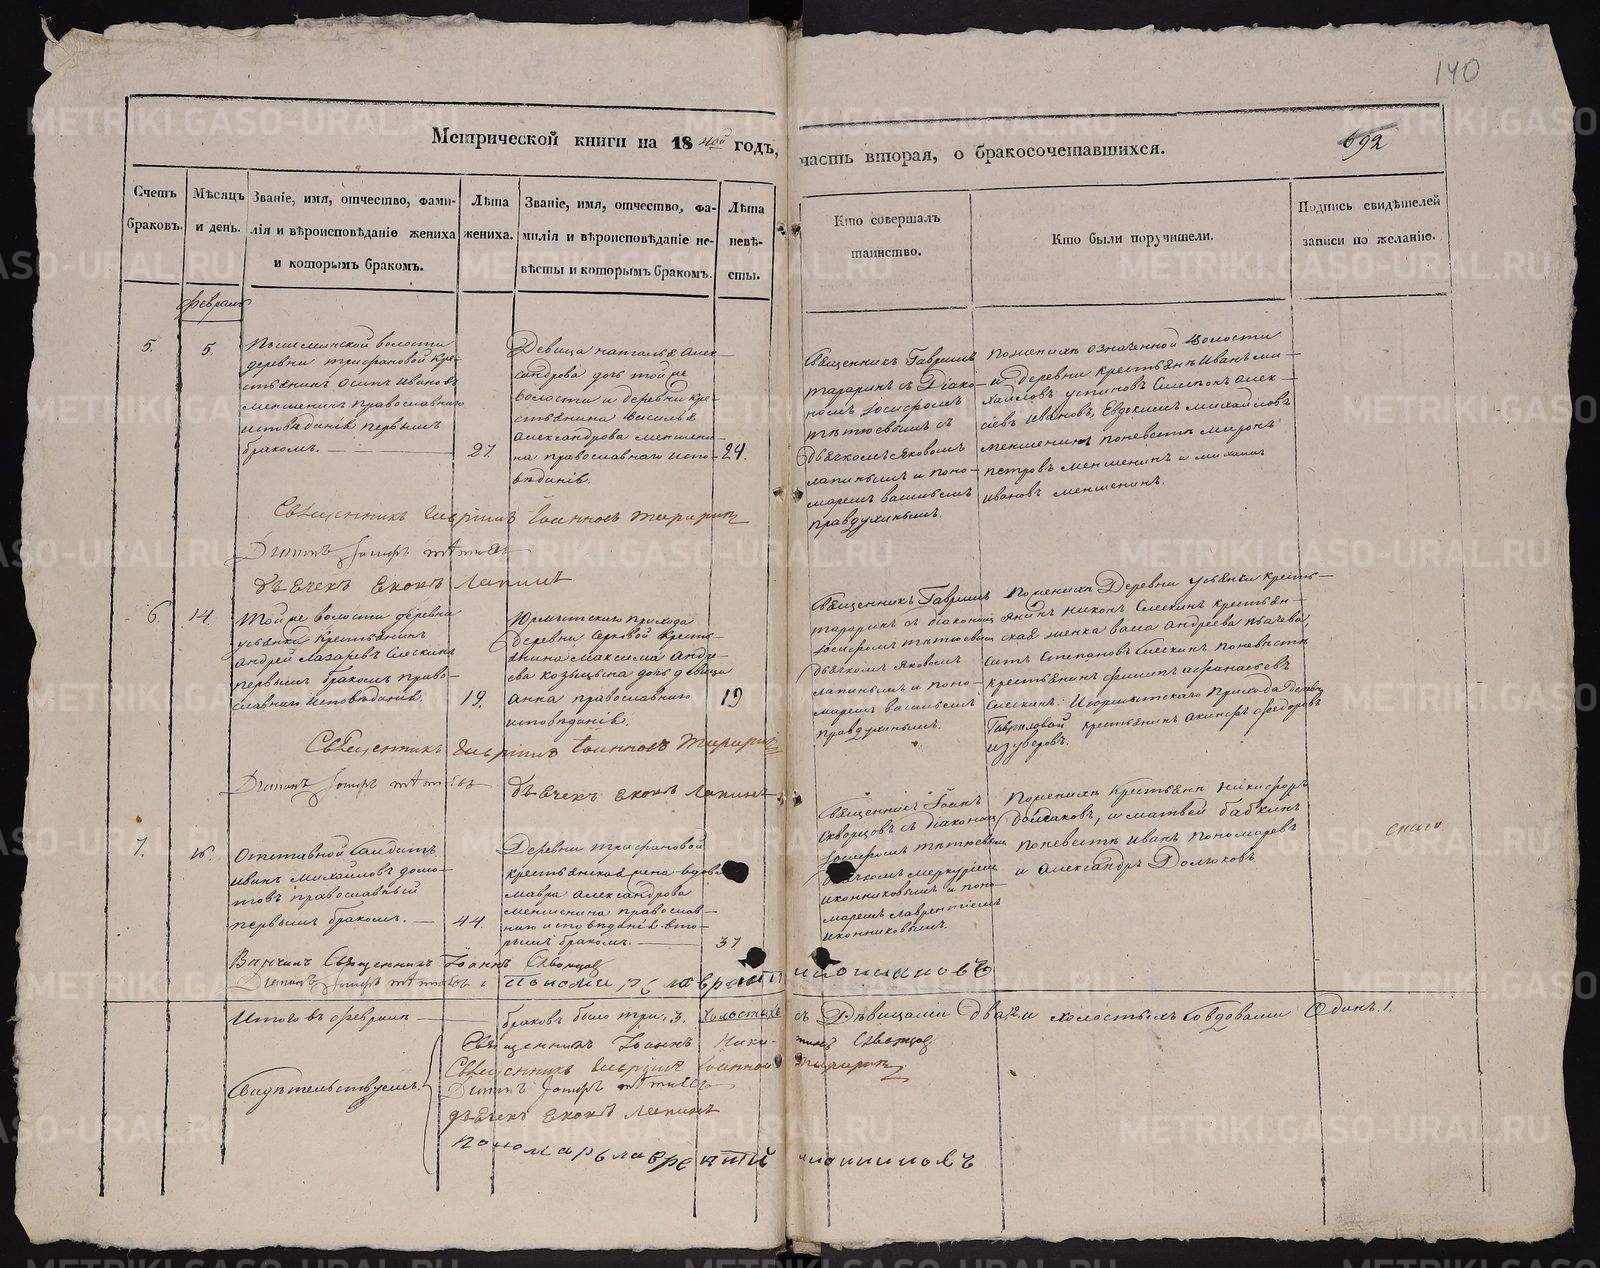 140
Метрической книги на 1840й годъ,
часть вторая, о бракосочетавшихся.
692
Счетъ браковъ.
Мѣсяцъ и день.
Званіе, имя, отчество, фами-
лія и вѣроисповѣданіе жениха
и которымъ бракомъ.
Лѣта
жениха.
Званіе, имя, отчество, фа-
милія и вѣроисповѣданіе не-
вѣсты и которымъ бракомъ.
Лѣта
невѣ-
сты.
Кто совершалъ
таинство.
Кто были поручители.
Подпись свидѣтелей
записи по желанію.
февраль
5.
5.
Пышминской волости
деревни трифановой кре-
стьянинъ Осипъ Ивановъ
меншенинъ православнаго
исповѣданія первымъ
бракомъ.
27.
Девица наталья Алек-
сандрова дочь той же
волости и деревни кре-
стьянина василья
александрова меншени-
на православнаго испо-
вѣданія.
24.
Священникъ Гавриилъ
тараринъ съ Діако-
номъ Іосифомъ
тѣтюевымъ съ
дьячкомъ яковомъ
лапинымъ и поно-
маремъ васильемъ
правдухинымъ.
Поженихѣ означенной волости
и деревни крестьянъ Иванъ ми-
хайловъ устиновъ Симеонъ алек-
сіевъ ивановъ, Евдокимъ михайловъ
меншенинъ поневестѣ миронъ
петровъ меншенинъ и михаилъ
ивановъ меншенинъ.
Священникъ Гавріилъ Іоанновъ тараринъ
Діаконъ Іосифъ тѣтюевъ
дьячекъ яковъ Лапинъ
6.
14.
Той же волости деревни
усьянки крестьянинъ
андрей лазаревъ Смескинъ
первымъ бракомъ право-
славнаго исповѣданія.
19.
Юрмытскаго прихода
деревни серковой кресть-
янина максима андре-
ева козьцына дочь девица
анна православнаго
исповѣданія.
19
Священникъ Гавриилъ
тараринъ съ діакономъ
Іосифомъ тѣтюевымъ
дьячкомъ яковомъ
лапинымъ и поно-
маремъ васильемъ
правдухинымъ.
Поженихѣ Деревни усьянки кресть-
янинъ никонъ Смескинъ крестьян-
ская женка васа андреева
Степановъ Смескинъ поневестѣ
крестьянинъ филипъ афанасьевъ
Смескинъ: Июрмытскаго Прихода Деревни
Гавриловой крестьянинъ акинфъ федоровъ
изуверовъ.
Священникъ Гавріилъ Іоанновъ Тараринъ
Діаконъ Іосифъ тѣтюевъ
дьячекъ яковъ Лапинъ
7.
16.
Отставной Солдатъ
иванъ михайловъ
православный
первымъ бракомъ.
44.
Деревни трифановой
крестьянская жена вдова
мавра александрова
меншенина православ-
наго исповѣданія вто-
рымъ бракомъ.
37
Священникъ Іоанн
Скворцовъ съ діакономъ
Іосифомъ тѣтюевымъ
дьячкомъ меркуріемъ
иконниковымъ и поно-
маремъ лаврентіемъ
иконниковымъ.
Поженихѣ крестьянъ никифоръ
и матвей бабкинъ
поневестѣ иванъ пономаревъ
и александръ Долгоковъ
Вѣнчалъ Священникъ Іоаннъ Скворцовъ
Діаконъ Іосифъ тѣтюевъ и Пономарь лаврентій иконниковъ
Итого въ февралѣ браковъ было три, 3. Холостыхъ съ Дѣвицами два 2 и холостыхъ со вдовами Одинъ 1.
Свидѣтельствуемъ.
Священникъ Іоаннъ Ники- тинъ Скворцовъ
Священникъ Гавріилъ Іоанновъ Тараринъ
Діаконъ Іосифъ тѣтюевъ
дьячекъ яковъ Лапинъ
пономарь лаврентій иконниковъ
METRIKI.GASO-URAL.RU